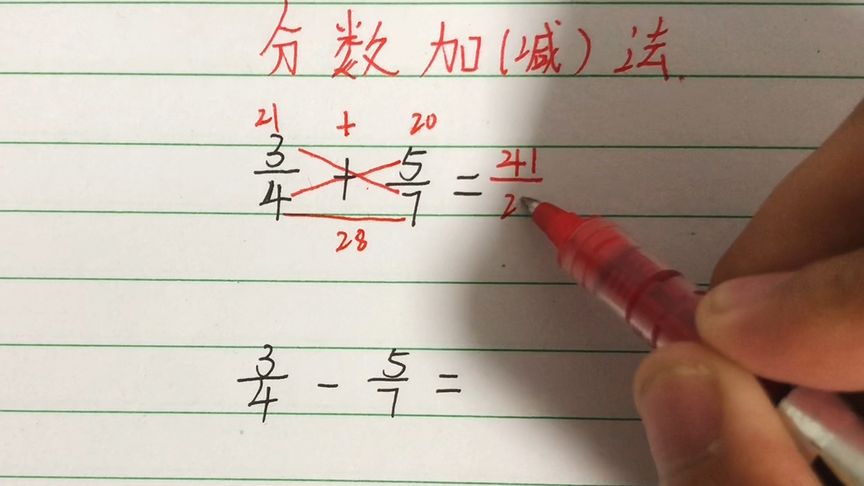 分数加(减)法.
21 + 20
3/4 + 5/7 = 41/2
28
3/4 - 5/7 =